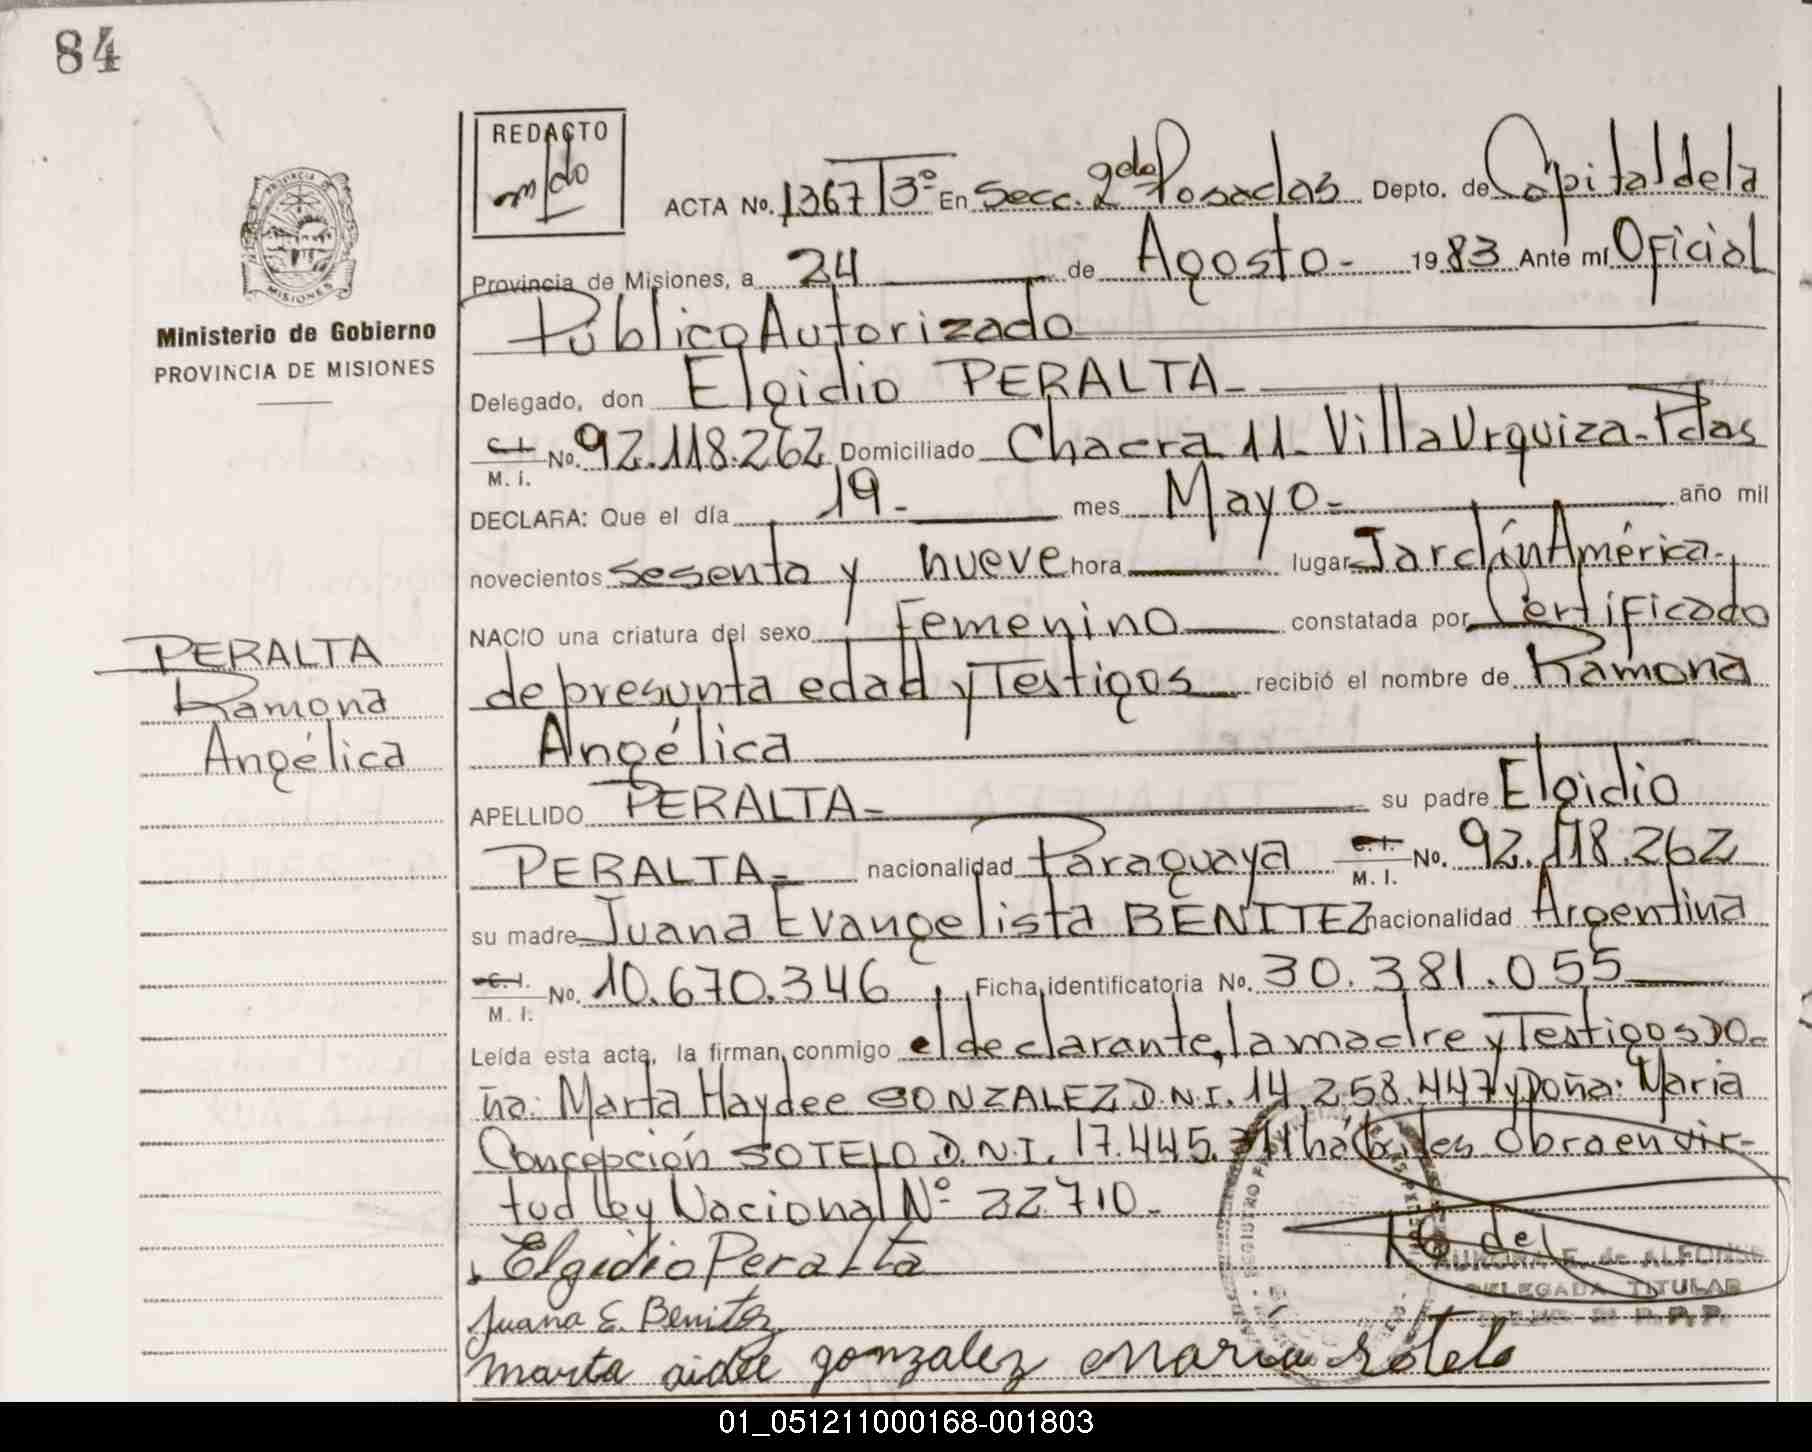 84
REDACTO
ACTA No. 1367 T3º En Secc. 2da Posadas Depto. de Capital de la
Provincia de Misiones, a 24 de Agosto - 1983 Ante mí Oficial
Público Autorizado
Ministerio de Gobierno
PROVINCIA DE MISIONES
Delegado, don Elgidio PERALTA -
C.I. M. I. No. 92.118.262 Domiciliado Chacra 11 - Villa Urquiza - Pdas
DECLARA: Que el día 19 - mes Mayo - año mil
novecientos sesenta y nueve hora lugar Jardín América -
NACIO una criatura del sexo Femenino constatada por Certificado
de presunta edad y Testigos recibió el nombre de Ramona
Angélica
PERALTA
Ramona
Angélica
APELLIDO PERALTA - su padre Elgidio
PERALTA - nacionalidad Paraguaya C.I. M. I. No. 92.118.262
su madre Juana Evangelista BENITEZ nacionalidad Argentina
C.I. M. I. No. 10.670.346 Ficha identificatoria No. 30.381.055
Leída esta acta, la firman conmigo el declarante, la madre y Testigos Do-
ña: Marta Haydee GONZALEZ D.N.I. 14.258.447 y Doña: Maria
Concepción SOTELO D.N.I. 17.445. hábiles Obra en vir-
tud ley Nacional Nº 22710 -
Elgidio Peralta
AURORA E. de ALFONSO
DELEGADA TITULAR
R. P. P.
Juana E. Benitez
marta aidee gonzalez maria sotelo
01_051211000168-001803